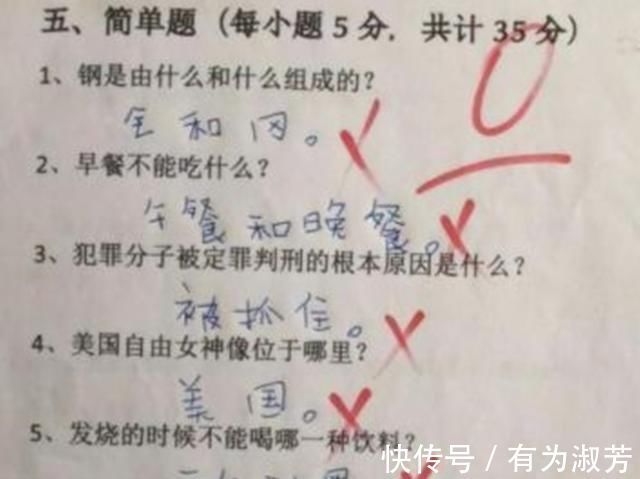 五、简单题（每小题5分，共计35分）
0
1、钢是由什么和什么组成的？
金和冈。
2、早餐不能吃什么？
午餐和晚餐。
3、犯罪分子被定罪判刑的根本原因是什么？
被抓住。
4、美国自由女神像位于哪里？
美国。
5、发烧的时候不能喝哪一种饮料？
快传号 / 有为淑芳